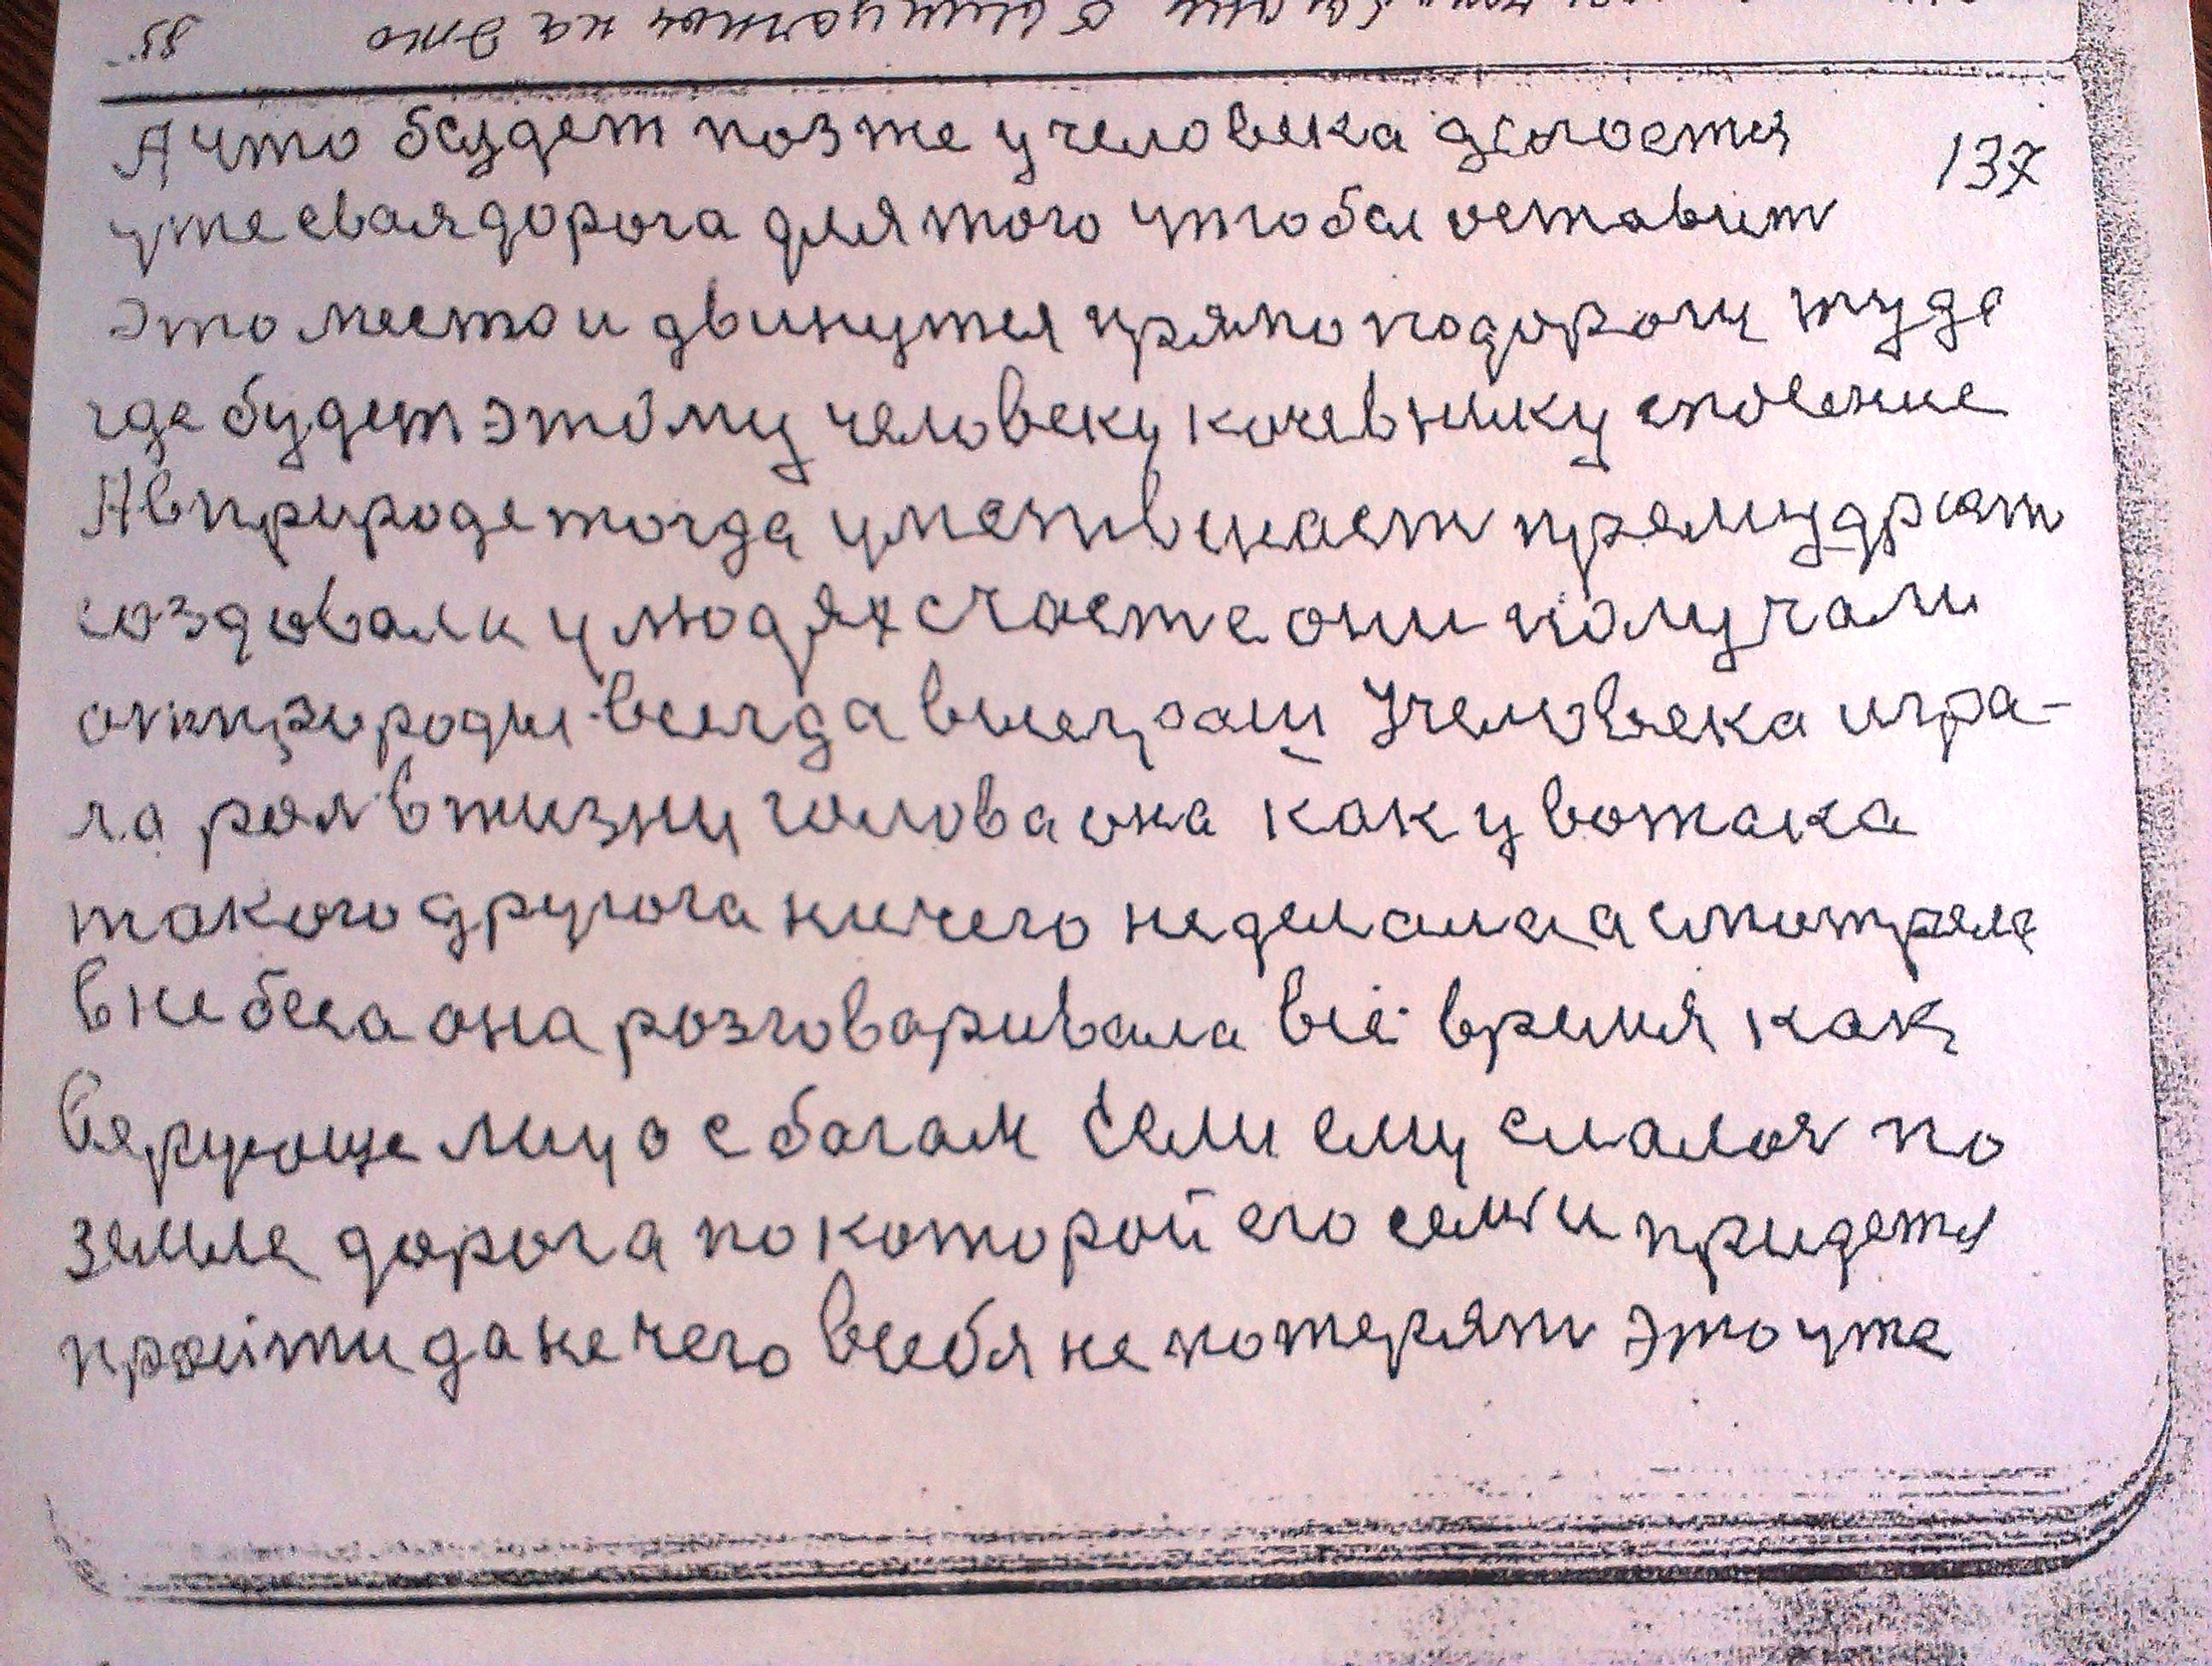 137
А что будет позже у человека делается
уже свая дорога для того чтобы оставит
это место и двинутся прямо по дорогу туде
где будет этому человеку кочевнику споление
А в природе тогда умение в знает премудрят
создовали у людях счасте они получали
от природы всегда выеграш У человека игра-
ла рол в жизни голова она как у вотака
такого другога ничего не делала а смотреле
в небеса она розговаривала всё время как
верующе лицо с богам Если ему слалоя по
земле дорога по которой его семьи придется
пройти да не чего в себя не потерят это уже